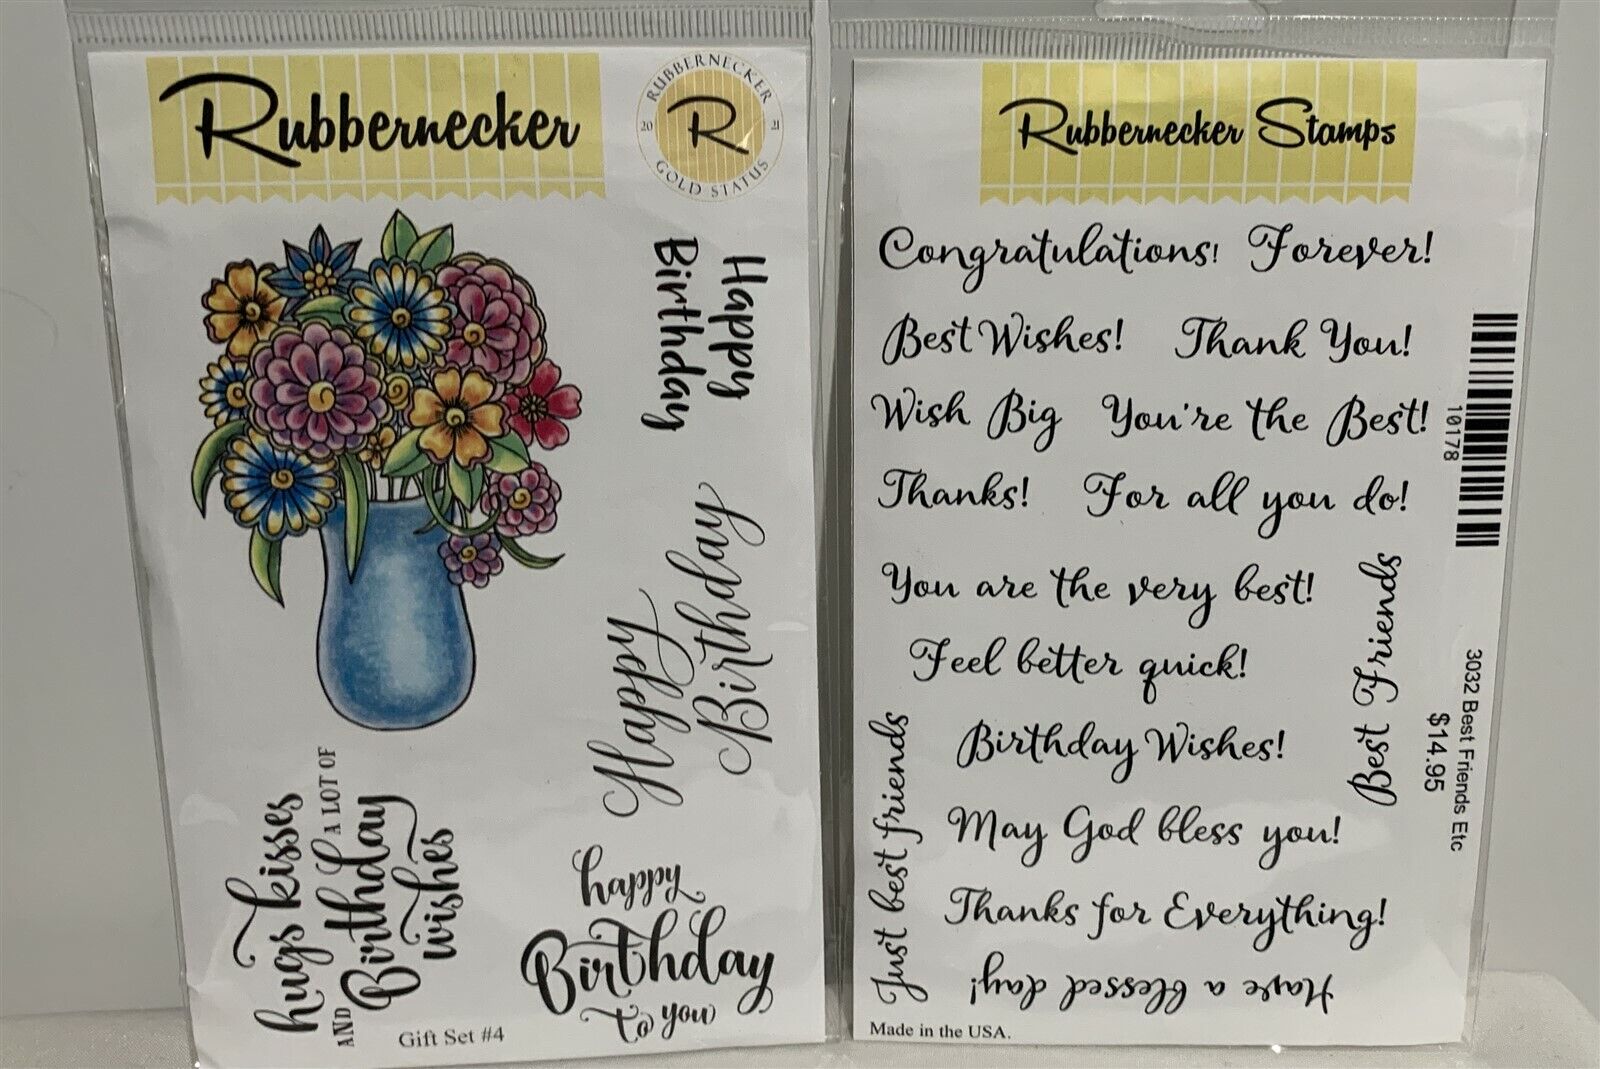 Rubbernecker
RUBBERNECKER
20 R 21
GOLD STATUS
Happy
Birthday
Happy
Birthday
hugs kisses
AND A LOT OF
Birthday
wishes
happy
Birthday
to you
Gift Set #4
Rubbernecker Stamps
Congratulations! Forever!
Best Wishes! Thank You!
Wish Big You're the Best!
Thanks! For all you do!
You are the very best!
Feel better quick!
Birthday Wishes!
May God bless you!
Thanks for Everything!
Have a blessed day!
Just best friends
Best Friends
Made in the USA.
10178
3032 Best Friends Etc
$14.95